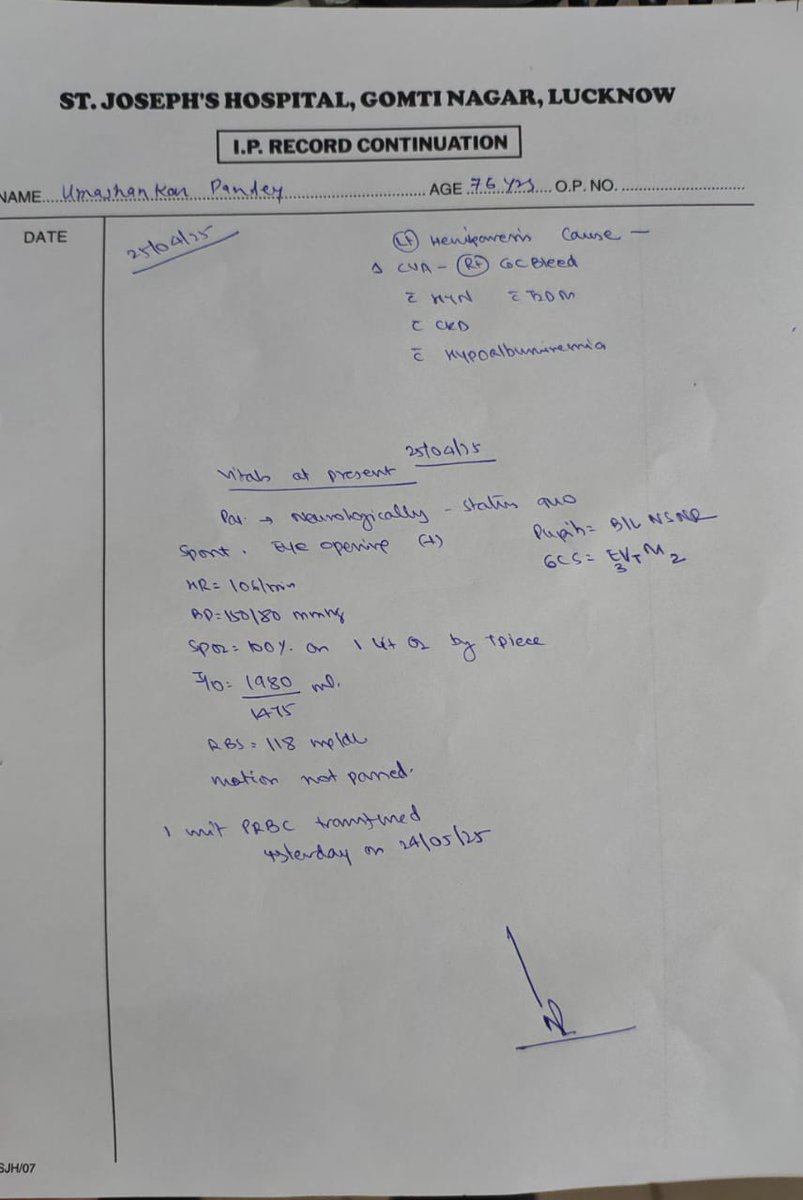 ST. JOSEPH'S HOSPITAL, GOMTI NAGAR, LUCKNOW
I.P. RECORD CONTINUATION
NAME Umashankar Pandey AGE 76 yrs O.P. NO.
DATE
25/04/25
Lt Hemiparesis Cause —
Δ CVA - Rt GC Bleed
c̄ HTN c̄ T2DM
c̄ CKD
c̄ Hypoalbuminemia
Vitals at present 25/04/25
Pat. → Neurologically - status quo
Spont. Eye opening (+)
Pupils = B/L NSNR
GCS = E3VTM2
HR = 106/min
BP = 150/80 mmHg
SpO2 = 100% on 1 lit O2 by T piece
I/O = 1980 ml.
1475
RBS = 118 mg/dl
motion not passed.
1 unit PRBC transfused
yesterday on 24/05/25
SJH/07